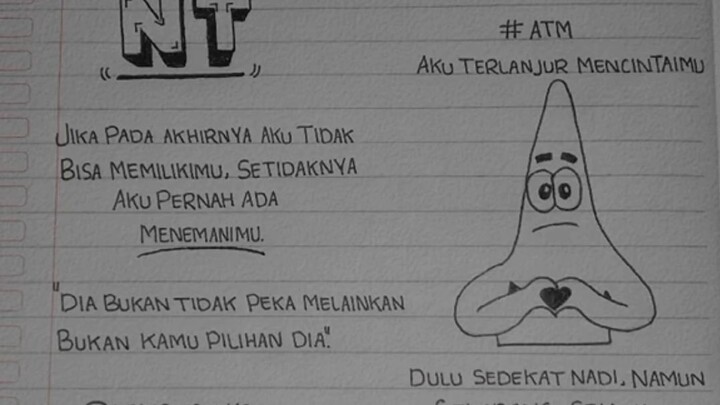 NT
JIKA PADA AKHIRNYA AKU TIDAK
BISA MEMILIKIMU, SETIDAKNYA
AKU PERNAH ADA
MENEMANIMU.
"DIA BUKAN TIDAK PEKA MELAINKAN
BUKAN KAMU PILIHAN DIA."
# ATM
AKU TERLANJUR MENCINTAIMU
DULU SEDEKAT NADI. NAMUN